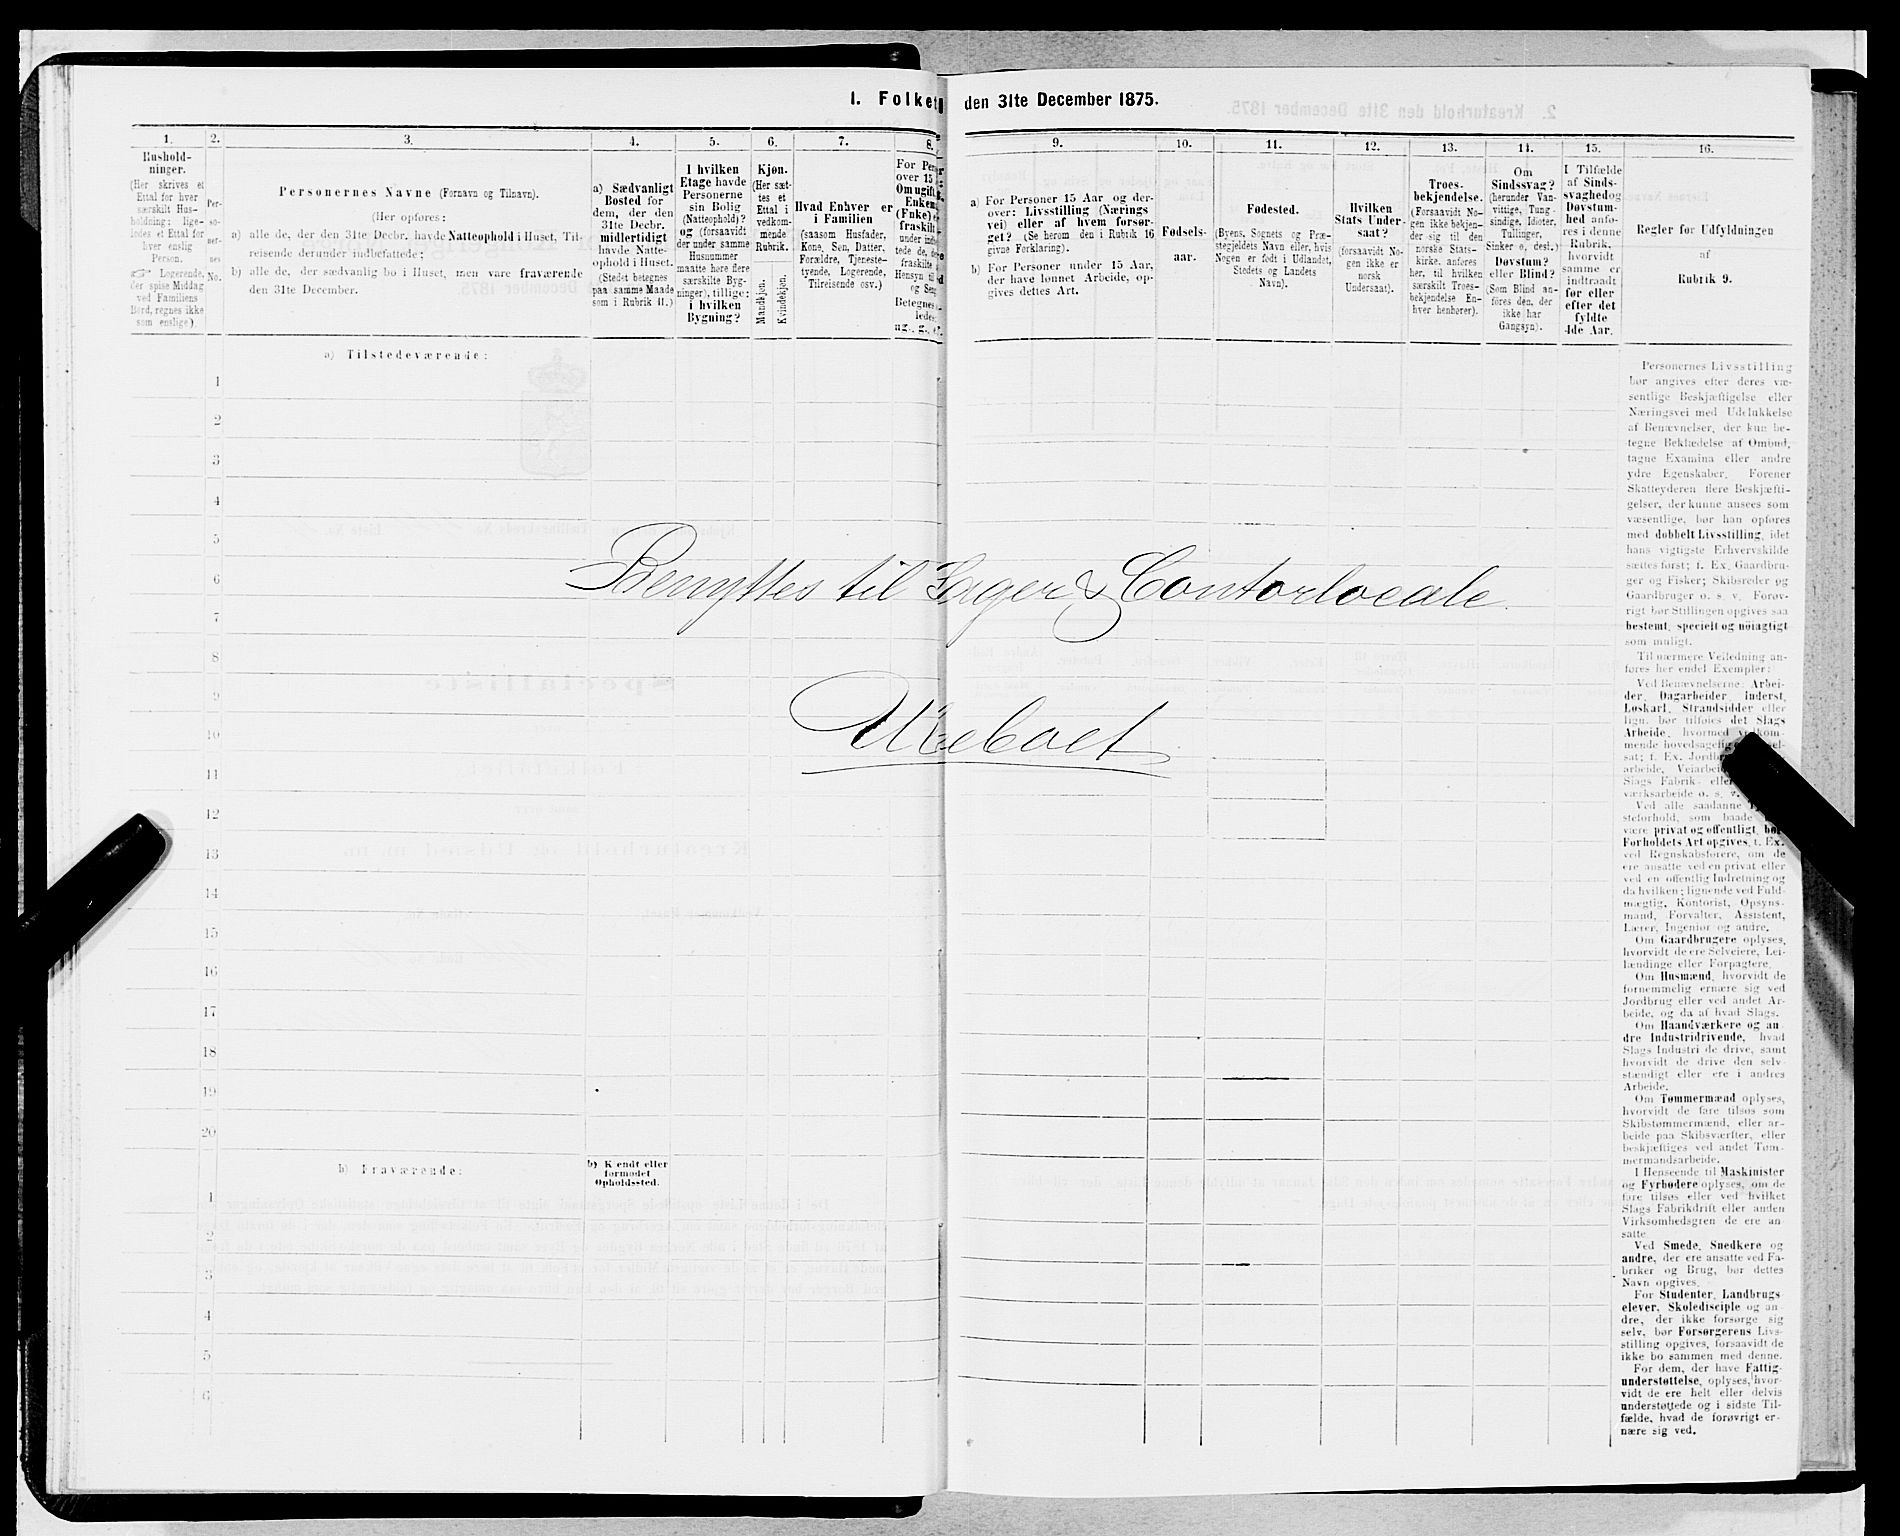 1. Folket
den 31te December 1875.
1.
2.
3.
4.
5.
6.
7.
8.
9.
10.
11.
12.
13.
14.
15.
16.
Hushold-
ninger.
(Her skrives et
Ettal for hver
særskilt Hus-
holdning; lige-
ledes et Ettal for
hver enslig
Person.
☞ Logerende,
der spise Middag
ved Familiens
Bord, regnes ikke
som enslige).
Per-
so-
ner-
nes
No.
Personernes Navne (Fornavn og Tilnavn).
(Her opføres:
a) alle de, der den 31te Decbr. havde Natteophold i Huset, Til-
reisende derunder indbefattede;
b) alle de, der sædvanlig bo i Huset, men vare fraværende
den 31te December.
a) Sædvanligt
Bosted for
dem, der den
31te Decbr.
midlertidigt
havde Natte-
ophold i Huset.
(Stedet betegnes
paa samme Maade
som i Rubrik 11.)
I hvilken
Etage havde
Personerne
sin Bolig
(Natteophold)?
og (forsaavidt
der under samme
Husnummer
maatte høre flere
særskilte Byg-
ninger), tillige:
i hvilken
Bygning?
Kjøn.
(Her sæt-
tes et
Ettal i
vedkom-
mende
Rubrik.
Mandkjøn.
Kvindekjøn.
Hvad Enhver er
i Familien
(saasom Husfader,
Kone, Søn, Datter,
Forældre, Tjeneste-
tyende, Logerende,
Tilreisende osv.)
For Per
over 15
Om ugift
Enkem
(Fnke)
fraskilt
under
tede de,
fraskilte
Hensyn til
og Seng
Betegnes
ledes
ug., g., e.
a) For Personer 15 Aar og der-
over: Livsstilling (Nærings
vei) eller af hvem forsør-
get? (Se herom den i Rubrik 16
givne Forklaring).
b) For Personer under 15 Aar,
der have lønnet Arbeide, op-
gives dettes Art.
Fødsels-
aar.
Fødested.
(Byens, Sognets og Præ-
stegjeldets Navn eller, hvis
Nogen er født i Udlandet,
Stedets og Landets
Navn).
Hvilken
Stats Under-
saat?
(forsaavidt No-
gen ikke er
norsk
Undersaat).
Troes-
bekjendelse.
(Forsaavidt No-
gen ikke bekjen-
der sig til den
norske Stats-
kirke, anføres
her, til hvilken
særskilt Troes-
bekjendelse En-
hver henhører).
Om
Sindssvag?
(herunder Van-
vittige, Tung-
sindige, Idioter,
Tullinger,
Sinker o. desl.)
Døvstum?
eller Blind?
(Som Blind an-
føres den, der
ikke har
Gangsyn).
I Tilfælde
af Sinds-
svaghed og
Døvstum-
hed anfø-
res i denne
Rubrik,
hvorvidt
samme er
indtraadt
før eller
efter det
fyldte
4de Aar.
Regler for Udfyldningen
af
Rubrik 9.
a) Tilstedeværende:
1
2
3
4
5
6
7
8
9
10
11
12
13
14
15
16
17
18
19
20
Benyttes til Lager & Contorlocale.
Ubeboet
b) Fraværende:
b) Kjendt eller
formodet
Opholdssted.
1
2
3
4
5
6
Personernes Livsstilling
bør angives efter deres væ-
sentlige Beskjæftigelse eller
Næringsvei med Udelukkelse
af Benævnelser, der kun be-
tegne Beklædelse af Ombud,
tagne Examina eller andre
ydre Egenskaber. Forener
Skatteyderen flere Beskjæfti-
gelser, der kunne ansees som
væsentlige, bør han opføres
med dobbelt Livsstilling, idet
hans vigtigste Erhvervskilde
sættes først; f. Ex. Gaardbru-
ger og Fisker; Skibsreder og
Gaardbruger o. s. v. Forøv-
rigt bør Stillingen opgives saa
bestemt, specielt og nöiagtigt
som muligt.
Til nærmere Veiledning an-
føres her endel Exempler:
Ved Benævnelserne: Arbei-
der, Dagarbeider, Inderst,
Løskarl, Strandsidder eller
lign. bør tilføies det Slags
Arbeide, hvormed vedkom-
mende hovedsagelig
sat; f. Ex. Jordbr
arbeide, Veiarbei
Slags Fabrik- eller
værksarbeide o. s. v.
Ved alle saadanne
steforhold, som baade
være privat og offentligt, bør
Forholdets Art opgives, f. Ex.
ved Regnskabsførere, om de
ere ansatte ved en privat eller
ved en offentlig Indretning og
da hvilken; lignende ved Fuld-
mægtig, Kontorist, Opsyns-
mand, Forvalter, Assistent,
Lærer, Ingeniør og andre.
Om Gaardbrugere oplyses,
hvorvidt de ere Selveiere, Lei-
lændinge eller Forpagtere.
Om Husmænd, hvorvidt de
fornemmelig ernære sig ved
Jordbrug eller ved andet Ar-
beide, og da af hvad Slags.
Om Haandværkere og an-
dre Industridrivende, hvad
Slags Industri de drive, samt
hvorvidt de drive den selv-
stændigt eller ere i andres
Arbeide.
Om Tømmermænd oplyses,
hvorvidt de fare tilsøs som
Skibstømmermænd, eller ar-
beide paa Skibsværfter, eller
beskjæftiges ved andet Tøm-
mermandsarbeide.
I Henseende til Maskinister
og Fyrbødere oplyses, om de
fare tilsøs eller ved hvilket
Slags Fabrikdrift eller anden
Virksomhedsgren de ere an-
satte.
Ved Smede, Snedkere og
andre, der ere ansatte ved Fa-
briker og Brug, bør dettes
Navn opgives.
For Studenter, Landbrugs
elever, Skoledisciple og an-
dre, der ikke forsørge sig
selv, bør Forsørgerens Livs-
stilling opgives, forsaavidt de
ikke bo sammen med denne.
For dem, der have Fattig-
understøttelse, oplyses, hvor-
vidt de ere helt eller delvis
understøttede og i sidste Til-
fælde, hvad de forøvrigt er-
nære sig ved.